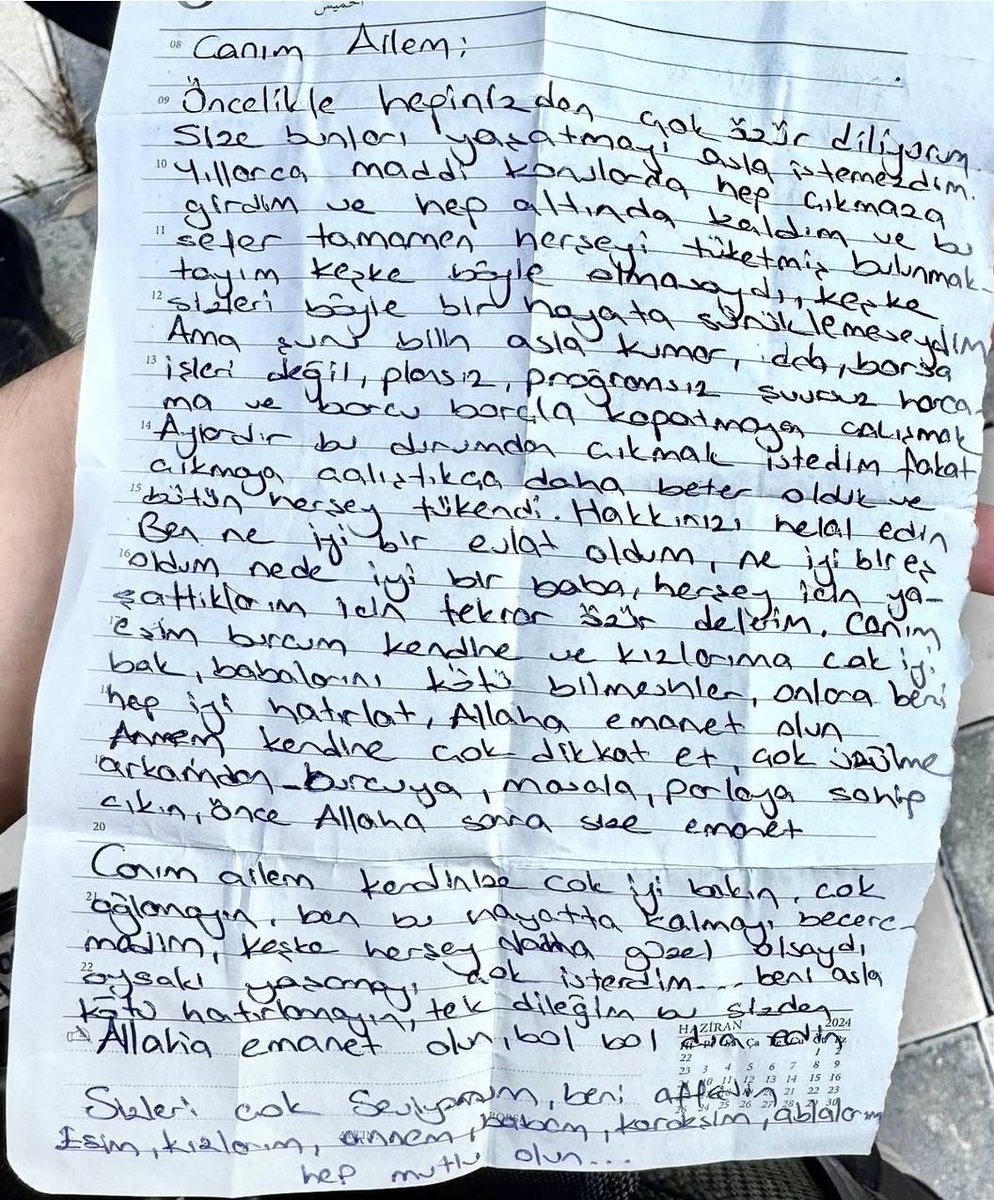 خميس
08 Canım Ailem;
09 Öncelikle hepinizden çok özür diliyorum.
Size bunları yaşatmayı asla istemezdim.
10 Yıllarca maddi konularda hep çıkmaza
girdim ve hep altında kaldım ve bu
11 sefer tamamen herşeyi tüketmiş bulunmak-
tayım keşke böyle olmasaydı, keşke
12 sizleri böyle bir hayata sürüklemeseydim
Ama şunu bilin asla kumar, idda, borsa
13 işleri değil, plansız, programsız şuursuz harca-
ma ve borcu borçla kapatmaya çalışmak
14 Aylardır bu durumdan çıkmak istedim fakat
çıkmaya çalıştıkça daha beter olduk ve
15 bütün herşey tükendi. Hakkınızı helal edin
Ben ne iyi bir evlat oldum, ne iyi bir eş
16 oldum nede iyi bir baba, herşey için ya-
şattıklarım için tekrar özür delerim, canım
eşim burcum kendine ve kızlarıma çok iyi
bak, babalarını kötü bilmesinler, onlara beni
hep iyi hatırlat, Allaha emanet olun
Annem kendine çok dikkat et, çok üzülme
arkamdan_burcuya, masala, parlaya sahip
çıkın, önce Allaha sonra size emanet
20
Canım ailem kendinize çok iyi bakın, çok
21 ağlamayın, ben bu hayatta kalmayı becere-
medim, keşke herşey daha güzel olsaydı
22 oysaki yaşamayı çok isterdim... beni asla
kötü hatırlamayın, tek dileğim bu sizden
Allaha emanet olun, bol bol dua edin
HAZİRAN 2024
Sizleri çok seviyorum, beni affedin
Eşim, kızlarım, annem, babam, kardeşim, ablalarım
hep mutlu olun...